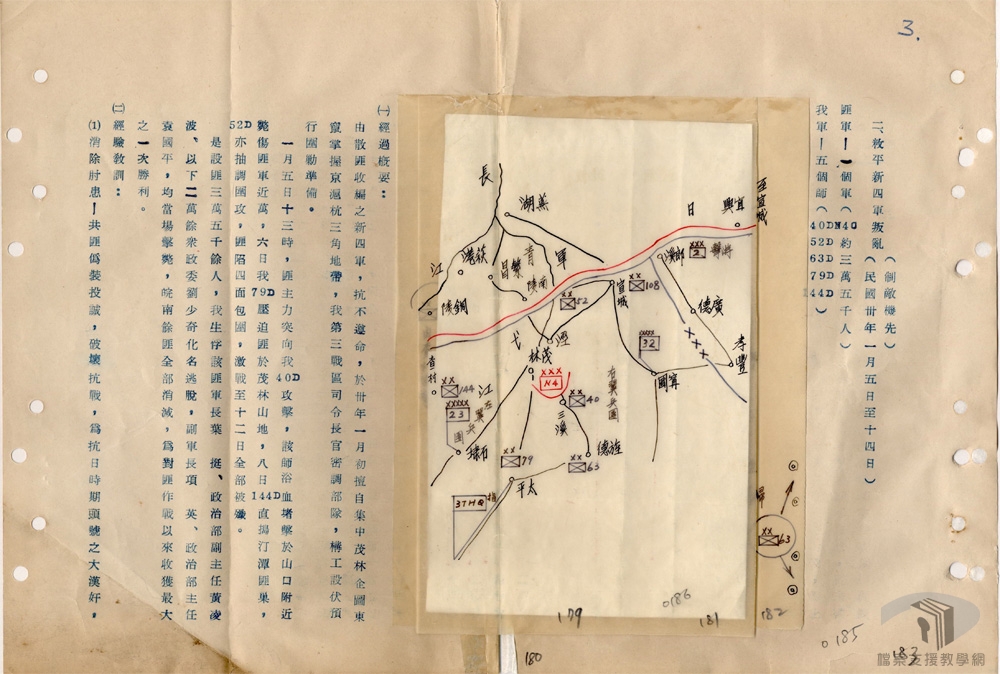 3.
二、敉平新四軍叛亂(制敵機先)(民國卅年一月五日至十四日)
匪軍－一個軍(N4C約三萬五千人)
我軍－五個師(40D 52D 63D 79D 144D)
至宣城
宜興
日
軍
郎溪
XXX 2
廣德
孝豐
長
江
蕪湖
荻港
繁昌
青
南陵
銅陵
宣城
XX 108
XX 52
XXXX 32
寧國
弋
江
涇
茂林
XXX N4
XX 40
右翼兵團
三溪
旌德
XX 63
XX 144
XXXXX 23
左翼兵團
石埭
XX 79
太平
3THQ
XX 63
㈠經過概要：
由散匪收編之新四軍，抗不遵命，於卅年一月初擅自集中茂林企圖東
竄掌握京滬杭三角地帶，我第三戰區司令長官密調部隊，構工設伏預
行圍勦準備。
一月五日十三時，匪主力突向我40D攻擊，該師浴血堵擊於山口附近
斃傷匪軍近萬，六日我79D壓迫匪於茂林山地，八日144D直搗汀潭匪巢，
52D亦抽調圍攻，匪陷四面包圍，激戰至十二日全部被殲。
是役匪三萬五千餘人，我生俘該匪軍長葉　挺、政治部副主任黃凌
波、以下二萬餘衆政委劉少奇化名逃脫，副軍長項　英、政治部主任
袁國平，均當場擊斃，皖南餘匪全部消滅，爲對匪作戰以來收獲最大
之一次勝利。
㈡經驗教訓：
⑴消除肘患－共匪僞裝投誠，破壞抗戰，爲抗日時期頭號之大漢奸，
179
180
0186
181
182
0185
183
檔案支援教學網